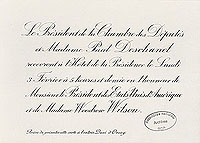 Le Président de la Chambre des Députés
et Madame Paul Deschanel
recevront à l'Hôtel de la Présidence le Lundi
3 Février à 5 heures et demie en l'honneur de
Monsieur le Président des Etats-Unis d'Amérique
et de Madame Woodrow Wilson.
Prière de présenter cette carte